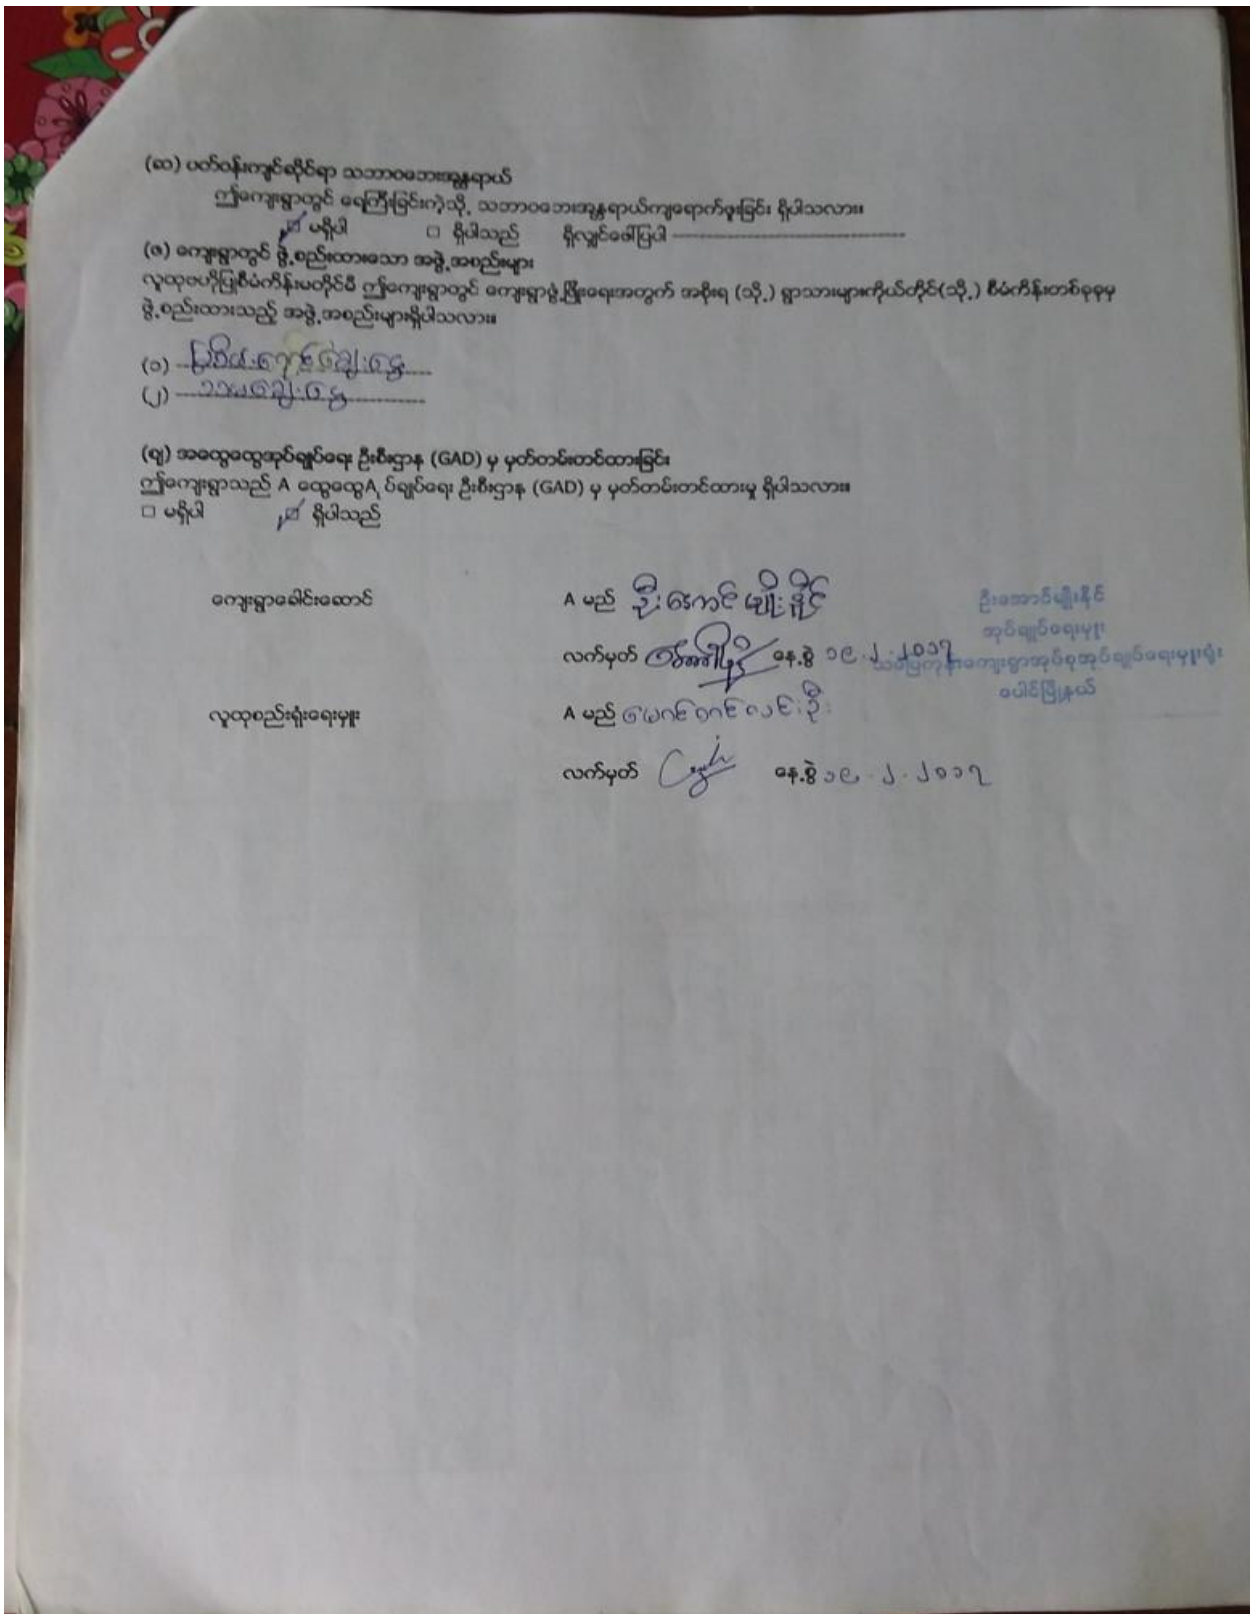 (ဆ) ပတ်ဝန်းကျင်ဆိုင်ရာ သဘာဝဘေးအန္တရာယ်
ဤကျေးရွာတွင် ရေကြီးခြင်းကဲ့သို့ သဘာဝဘေးအန္တရာယ်ကျရောက်ဖူးခြင်း ရှိပါသလား။
☑ မရှိပါ □ ရှိပါသည် ရှိလျှင်ဖေါ်ပြပါ ------------------------------------
(ဇ) ကျေးရွာတွင် ဖွဲ့စည်းထားသော အဖွဲ့အစည်းများ
လူထုဗဟိုပြုစီမံကိန်းမတိုင်မီ ဤကျေးရွာတွင် ကျေးရွာဖွံ့ဖြိုးရေးအတွက် အစိုးရ (သို့) ရွာသားများကိုယ်တိုင်(သို့) စီမံကိန်းတစ်ခုခုမှ
ဖွဲ့စည်းထားသည့် အဖွဲ့အစည်းများရှိပါသလား။
(၁) မြစိမ်းရောင်ချေးငွေ
(၂) သမချေးငွေ
(ဈ) အထွေထွေအုပ်ချုပ်ရေး ဦးစီးဌာန (GAD) မှ မှတ်တမ်းတင်ထားခြင်း
ဤကျေးရွာသည် A ထွေထွေA ုပ်ချုပ်ရေး ဦးစီးဌာန (GAD) မှ မှတ်တမ်းတင်ထားမှု ရှိပါသလား။
□ မရှိပါ ☑ ရှိပါသည်
ကျေးရွာခေါင်းဆောင် A မည် ဦးအောင်မျိုးနိုင်
ဦးအောင်မျိုးနိုင်
အုပ်ချုပ်ရေးမှူး
လက်မှတ် နေ့စွဲ ၁၉.၂.၂၀၁၇
ကျေးရွာအုပ်စုအုပ်ချုပ်ရေးမှူးရုံး
ပေါင်မြို့နယ်
လူထုစည်းရုံးရေးမှူး A မည်
လက်မှတ် နေ့စွဲ ၁၉.၂.၂၀၁၇